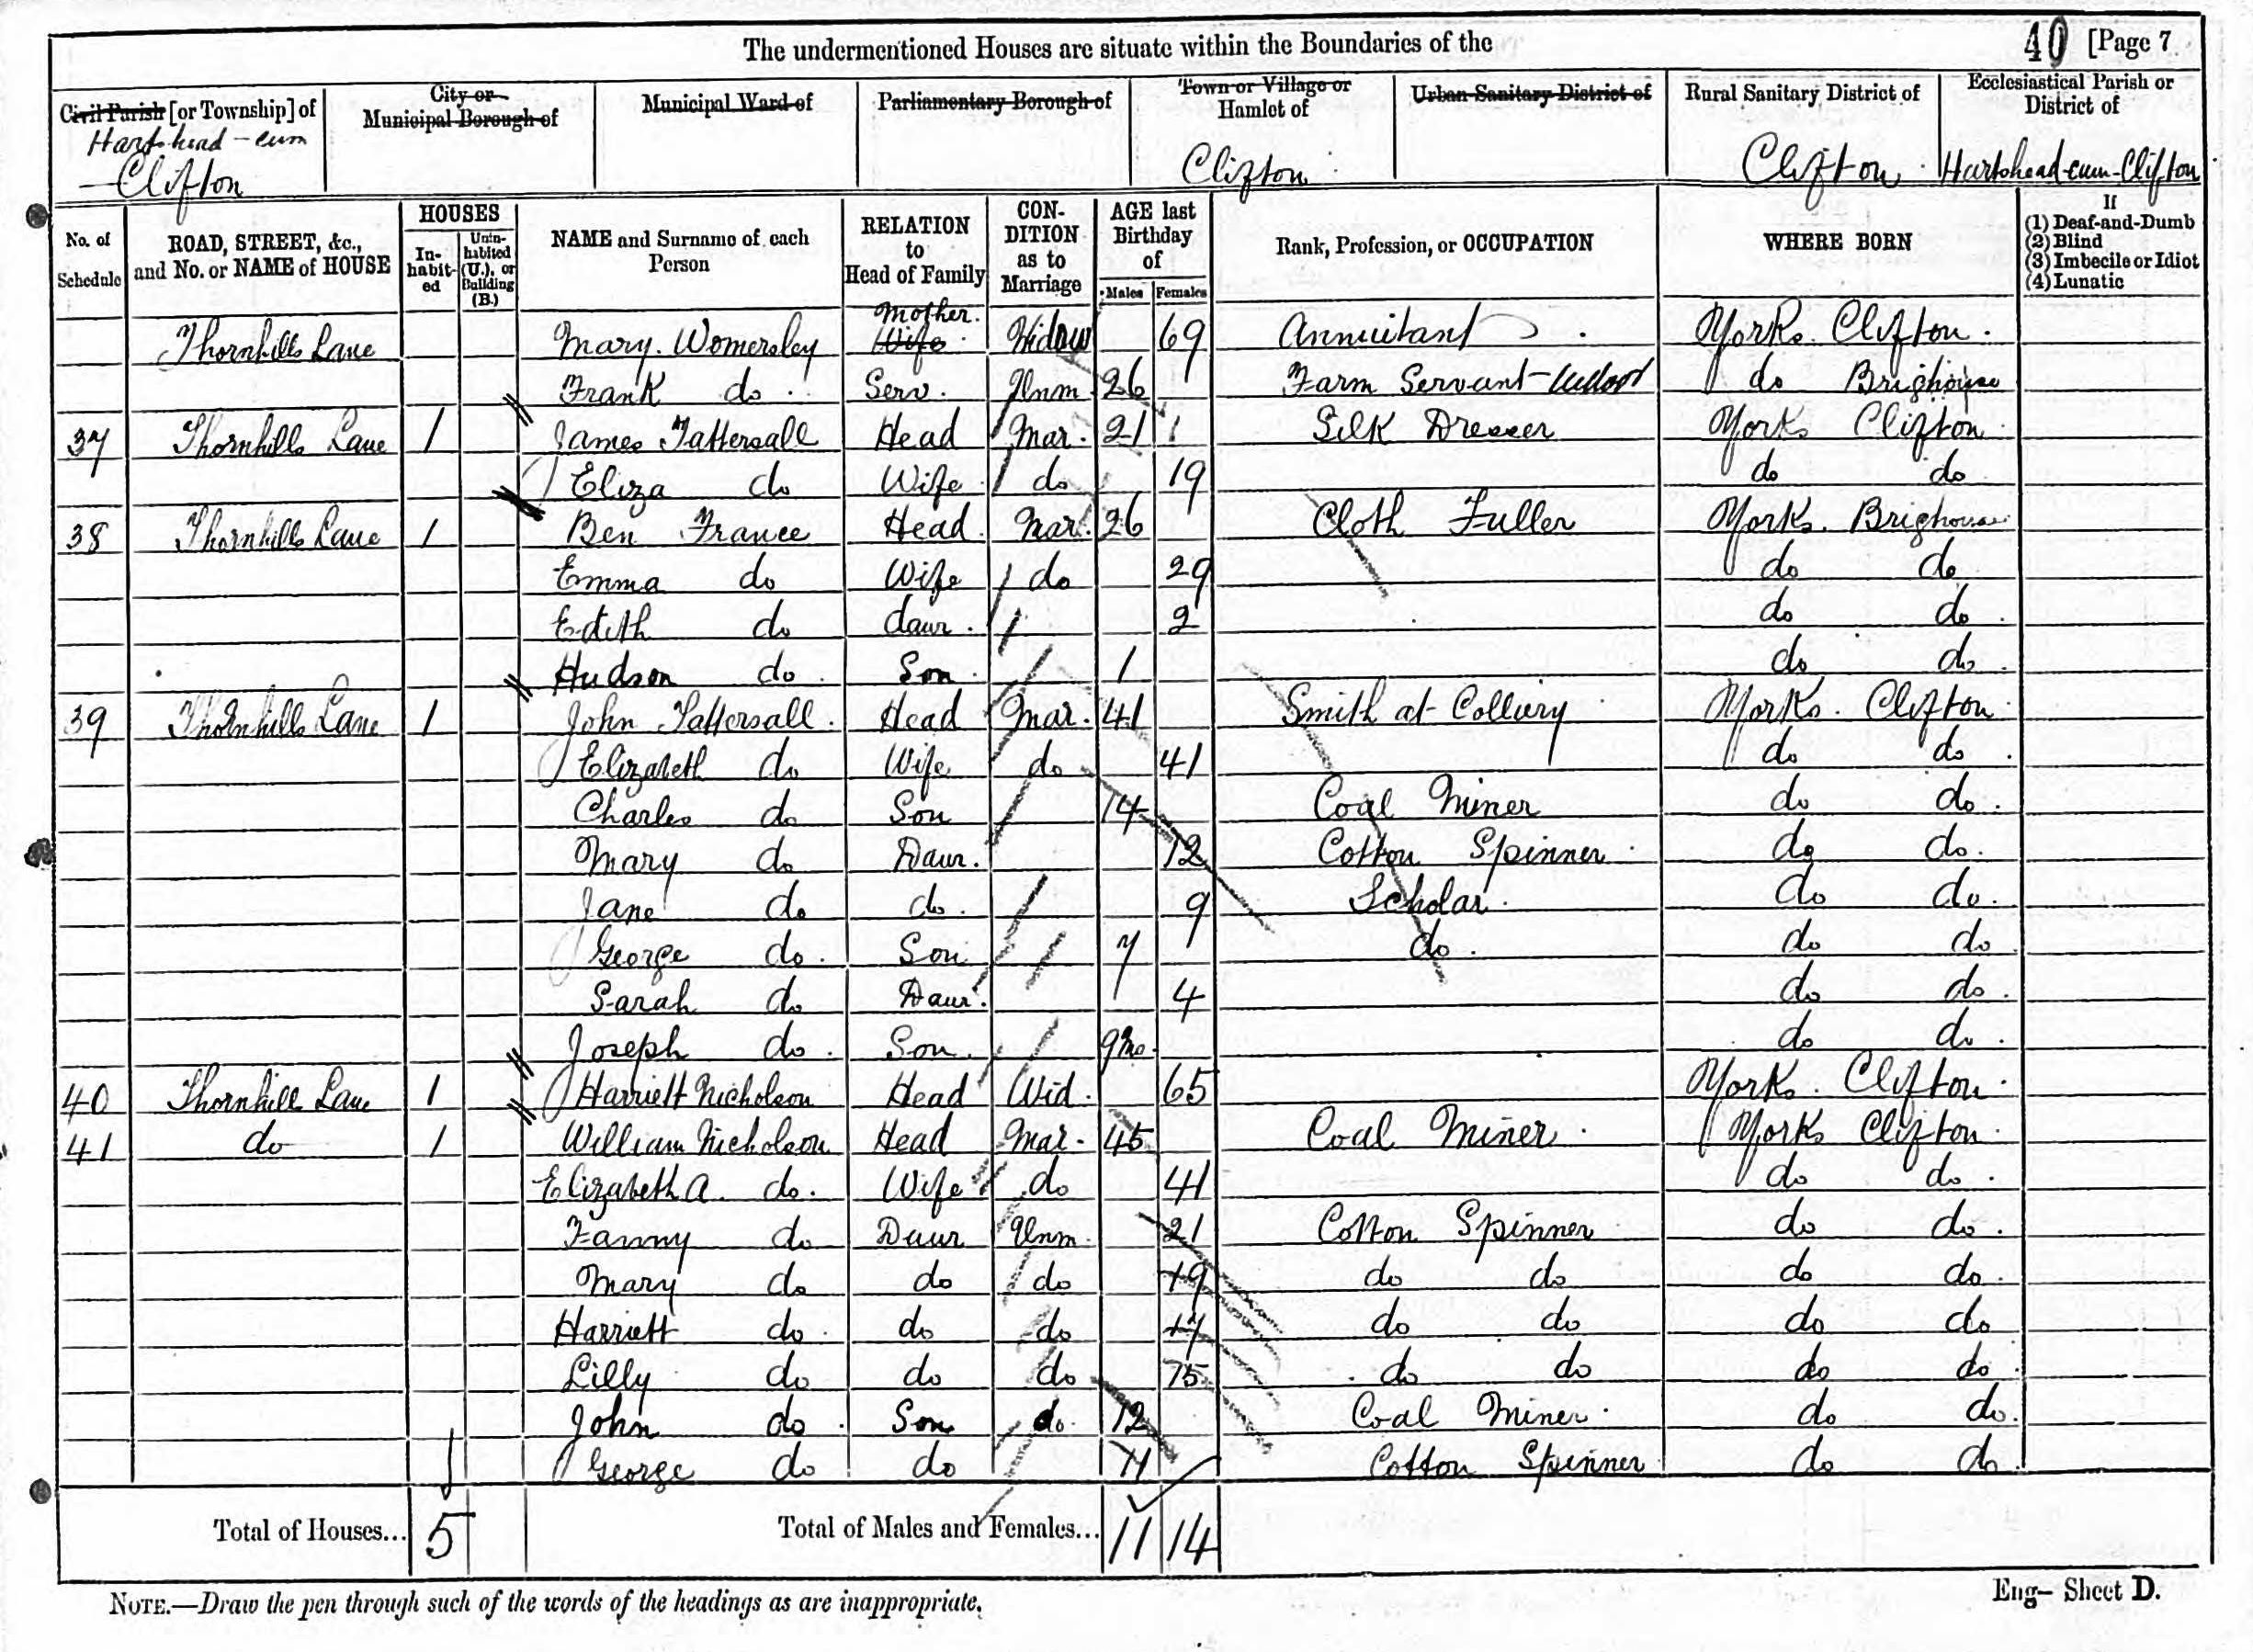 The undermentioned Houses are situate within the Boundaries of the
40 [Page 7
Civil Parish [or Township] of
Hartshead-cum
Clifton
City or
Municipal Borough of
Municipal Ward of
Parliamentary Borough of
Town or Village or
Hamlet of
Clifton
Urban Sanitary District of
Rural Sanitary District of
Clifton
Ecclesiastical Parish or
District of
Hartshead-cum-Clifton
No. of
Schedule
ROAD, STREET, &c.,
and No. or NAME of HOUSE
HOUSES
In-
habit-
ed
Unin-
habited
(U.), or
Building
(B.)
NAME and Surname of each
Person
RELATION
to
Head of Family
CON-
DITION
as to
Marriage
AGE last
Birthday
of
Males Females
Rank, Profession, or OCCUPATION
WHERE BORN
If
(1) Deaf-and-Dumb
(2) Blind
(3) Imbecile or Idiot
(4) Lunatic
Mother.
Thornhills Lane Mary. Womersley Wife Widow 69 Annuitant Yorks. Clifton.
Frank do Serv. Unm. 26 Farm Servant- do Brighouse
37 Thornhills Lane 1 James Tattersall Head Mar. 21 Silk Dresser Yorks Clifton
Eliza do Wife do 19 do do
38 Thornhills Lane 1 Ben France Head Mar. 26 Cloth Fuller Yorks. Brighouse
Emma do Wife do 29 do do
Edith do daur. 2 do do.
Hudson do Son 1 do do.
39 Thornhills Lane 1 John Tattersall. Head Mar. 41 Smith at Colliery Yorks. Clifton
Elizabeth do Wife do 41 do do.
Charles do Son 14 Coal Miner do do.
Mary do Daur. 12 Cotton Spinner do do.
Jane do do. 9 Scholar. do do.
George do. Son 7 do. do do.
Sarah do Daur. 4 do do.
Joseph do. Son. 9mo. do do.
40 Thornhill Lane 1 Harriett Nicholson Head Wid. 65 Yorks. Clifton.
41 do 1 William Nicholson Head Mar. 45 Coal Miner. Yorks Clifton
Elizabeth A. do. Wife do 41 do do.
Fanny do Daur Unm. 21 Cotton Spinner do do.
Mary do do do 19 do do do do.
Harriett do do do 17 do do do do
Lilly do do do 15 do do do do.
John do. Son do. 12 Coal Miner. do do.
George do do 11 Cotton Spinner do do
Total of Houses... 5 Total of Males and Females... 11 14
NOTE.—Draw the pen through such of the words of the headings as are inappropriate.
Eng— Sheet D.